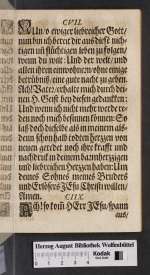 CVII.
NUn / o ewiger liebreicher Gott /
nim bin ich bereit dir aus diesem
und flüchtigen leben zu folgen /
wenn du wilt: Und der welt / und
allen ihren einwohnern / ohne einige
betrübniß / eine gute nacht zu geben.
Ach! Vater / erhalte mich durch dei-
nen H. Geist bey diesen gedancken:
Und wenn ich nicht mehr werde re-
den noch mich besinnen können: So
laß doch dieselbe als in meinem als-
denn schon halb todten hertzen von
neuen geredet noch ihre krafft und
nachdruck in deinem barmhertzigen
und liebreichen Hertzen haben. Um
deines Sohnes meines Bruders
und Erlösers JEsu Christi willen /
Amen.
CIIX.
Ach! so kom HErr JEsu / spann
aus /
Herzog August Bibliothek Wolfenbüttel